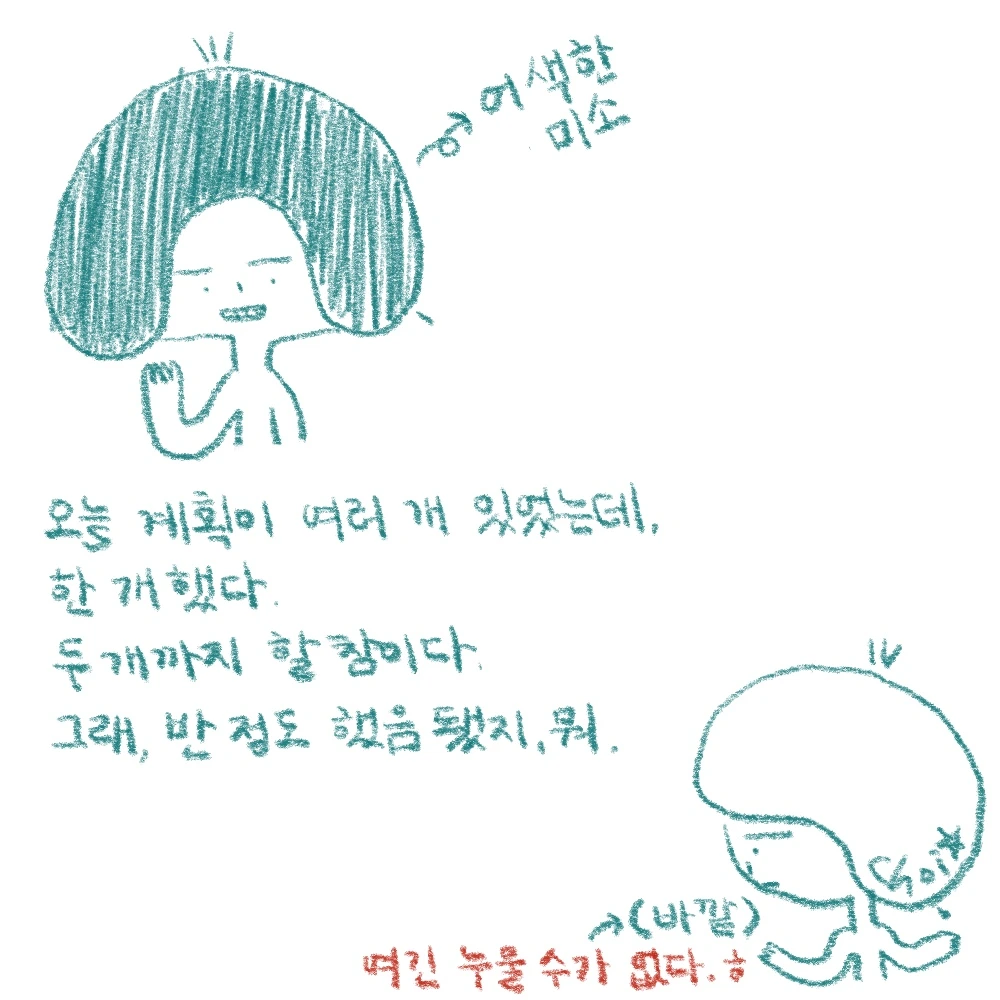 어색한
미소
오늘 계획이 여러 개 있었는데,
한 개 했다.
두 개까지 할 참이다.
그래, 반 정도 했음 됐지, 뭐.
Choi
(바깥)
여긴 누물 수가 없다. ㅎ